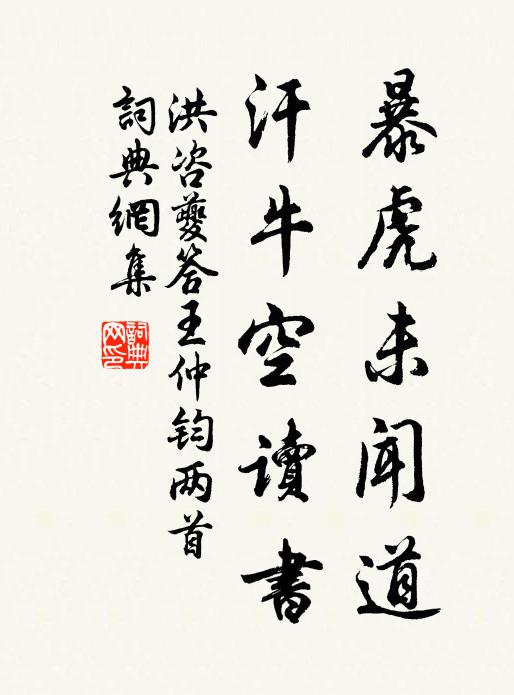 暴虎未闻道
汗牛空读書
洪咨夔答王仲钧两首
詞典網集
詞典网印